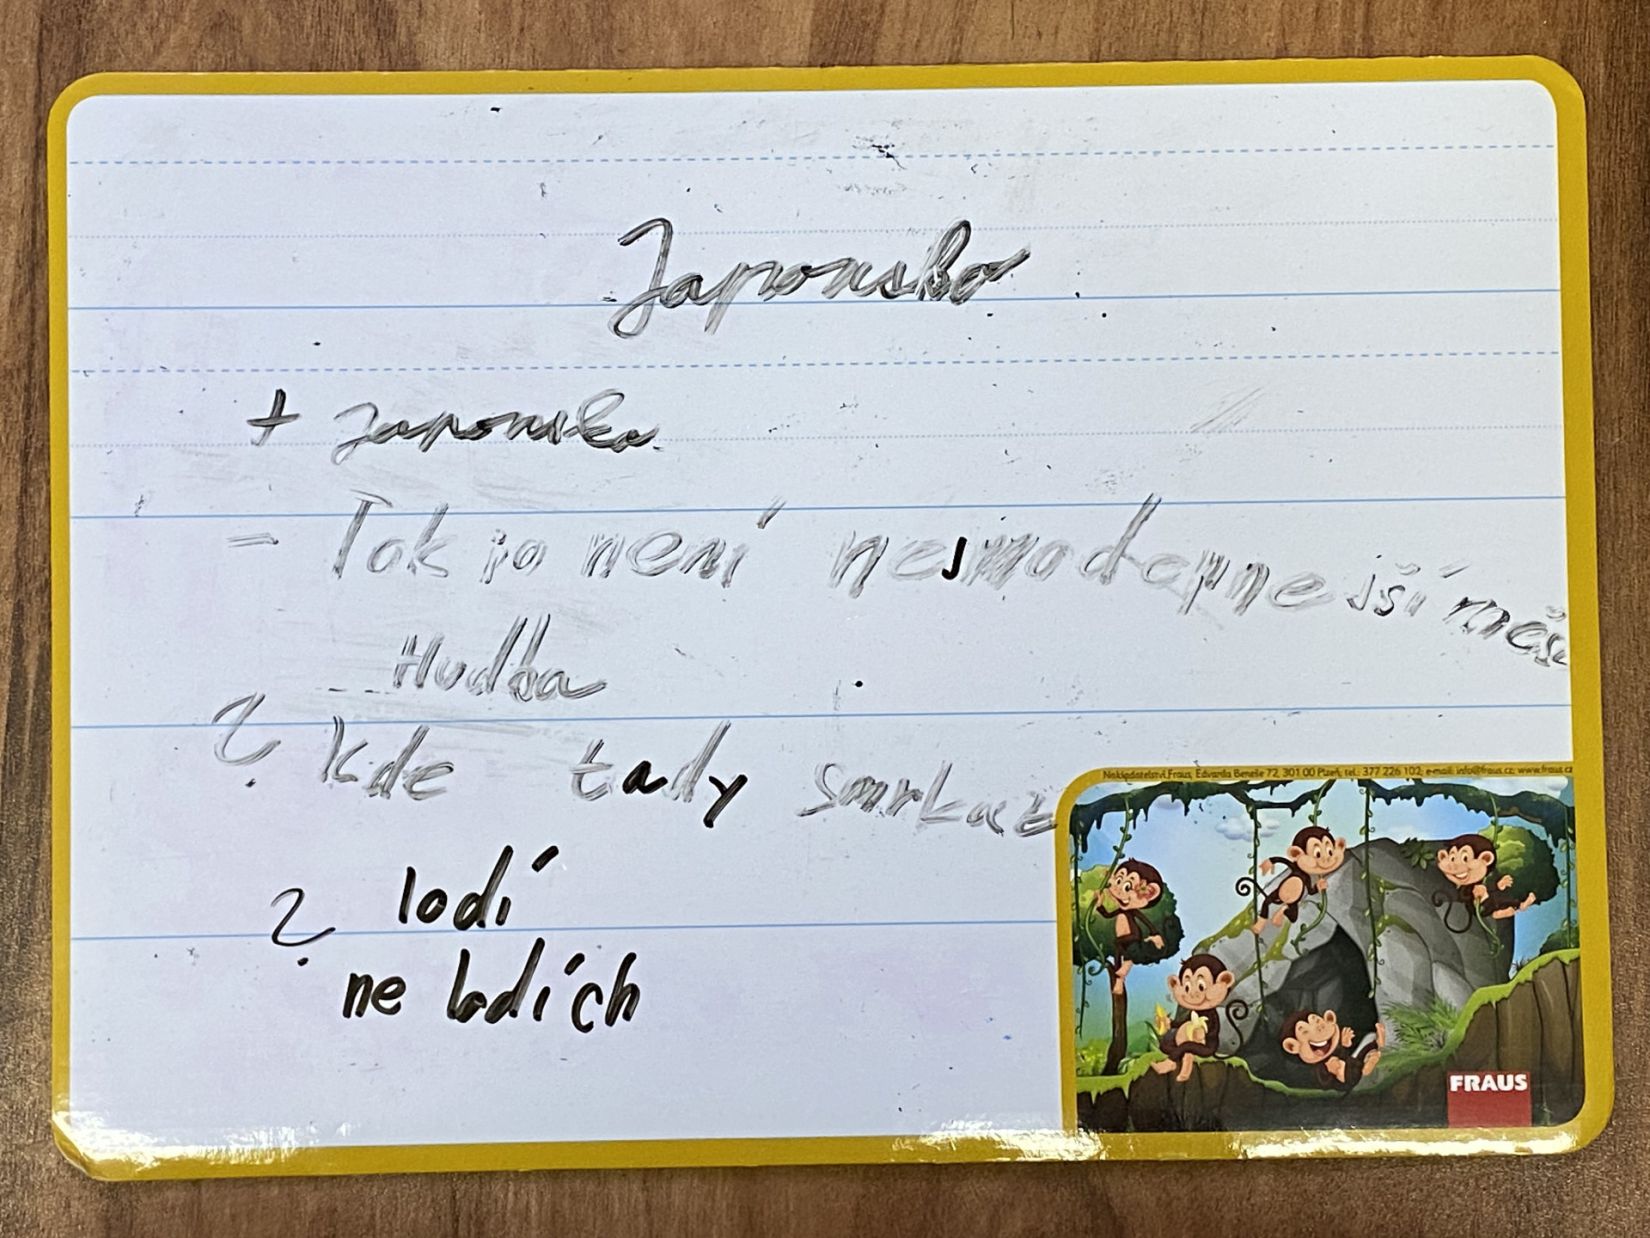 Japonsko
+ Japonsko
- Tokio není nejmodernejší měs
Hudba
? kde tady smrkat
? lodí
ne lodích
Nakladatelství Fraus, Edvarda Beneše 72, 301 00 Plzeň; tel.: 377 226 102; e-mail: info@fraus.cz; www.fraus.cz
FRAUS